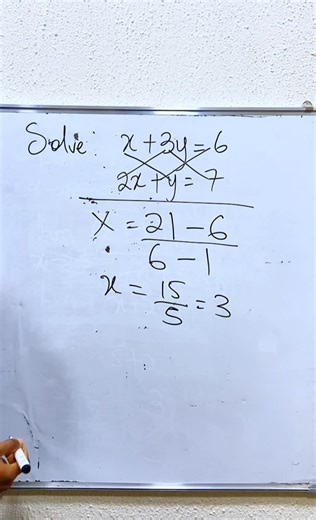 Solve: x + 3y = 6
2x + y = 7
x = 21 - 6 / 6 - 1
x = 15/5 = 3